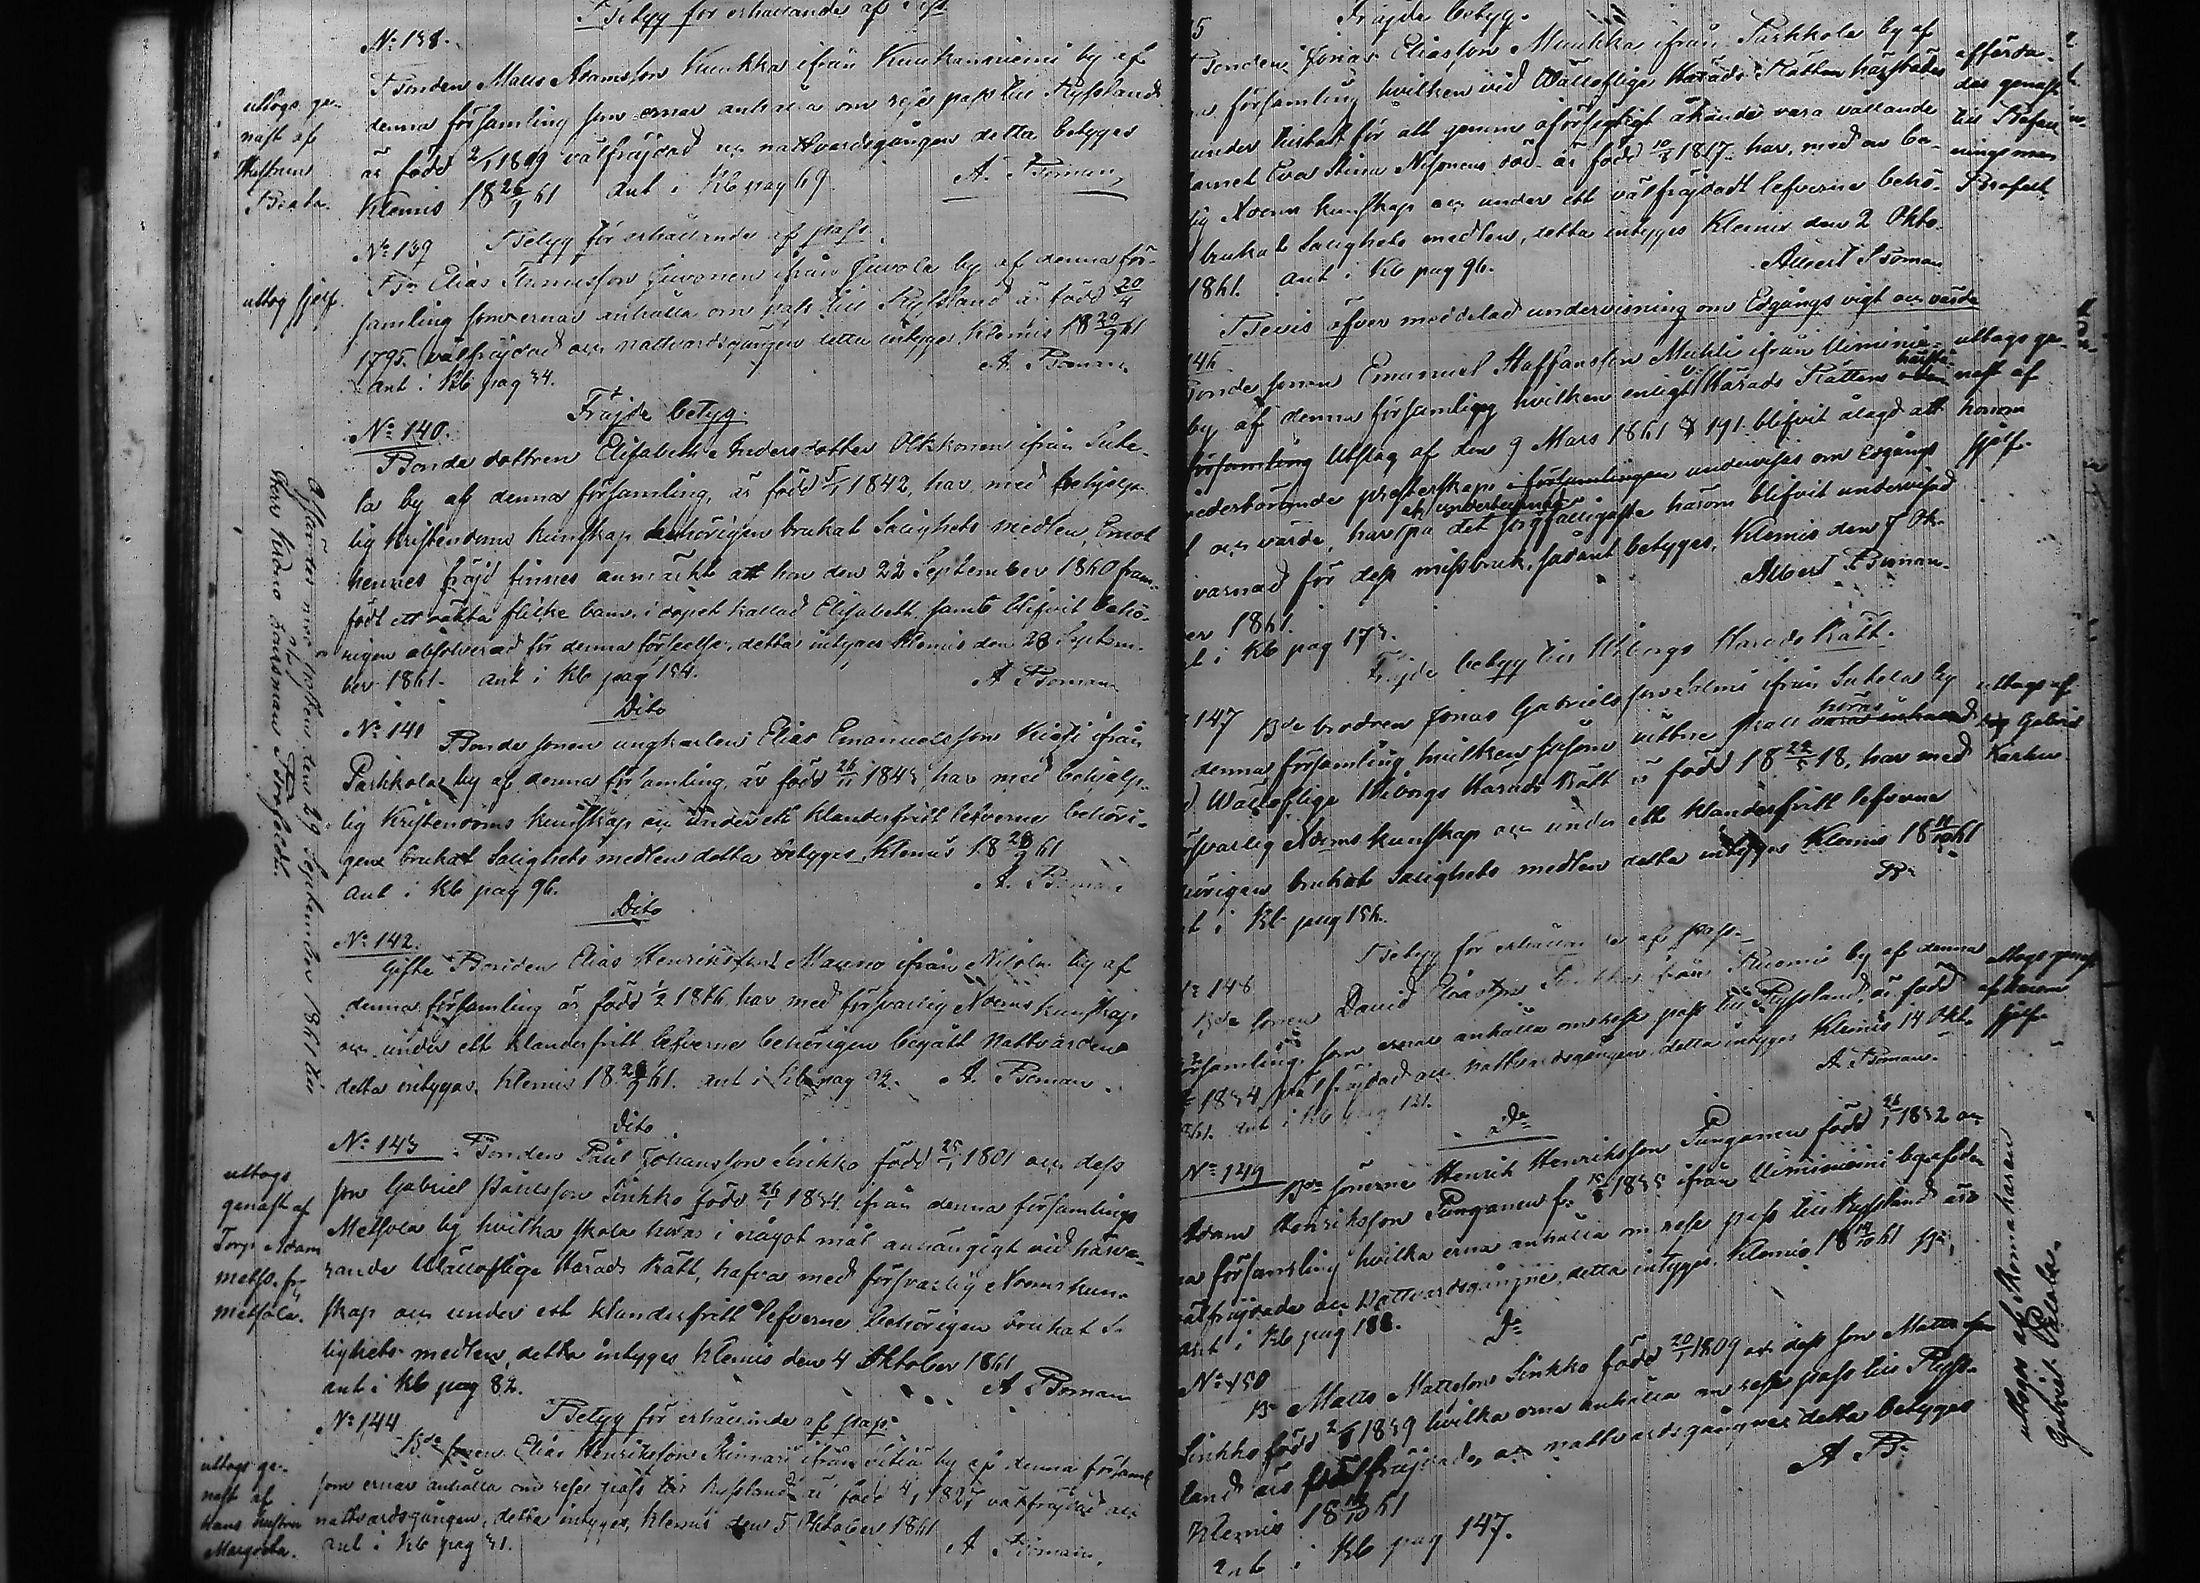 Betyg för erhållande af pass
No 138.
Bonden Matts Adamsson Kuukka ifrån Kuukanniemi by af
denna församling som ernar anhålla om respass till Ryssland
är född 2/1 1809 välfräjdad och nattvardsgången detta betygas
Klemis 18 26/9 61 Ant i Kb pag 69. A. Boman
uttogs ge-
nast af
Hustrun
Beata.
No 139 Betyg för erhållande af pass.
Bn Elias Juvonen ifrån Juvola by af denna för-
samling som ernar anhålla om pass till Ryssland är född 20/4
1795. välfräjdad och nattvardsgången detta intygas Klemis 18 29/9 61
Ant i Kb pag 34. A. Boman
uttog sjelf.
Fräjde betyg.
No 140.
Bonde dottren Elisabeth Andersdotter Olkkonen ifrån Sute-
la by af denna församling, är född 5/1 1842, har med behjelp-
lig kristendoms kunskap behörigen brukat Salighets medlen, Emot
hennes fräjd finnes anmärkt att hon den 22 September 1860 fram-
födt ett oäkta flicke barn, i dopet kallad Elisabeth, samt blifvit behö-
rigen absolverad för denna förseelse, detta intygas Klemis den 28 Septem-
ber 1861. Ant i Kb pag 154. A Boman
Dito
No 141
Bonde sonen ungkarlen Elias Emanuelsson ifrån
Parkkola by af denna församling, är född 26/11 1843, har med behjelp-
lig Kristendoms kunskap och under ett klanderfritt lefverne behöri-
gen brukat Salighets medlen detta betygas Klemis 18 28/9 61
Ant i Kb pag 96. A. Boman
Dito
No 142.
Gifte Bonden Elias Henriksson Mauno ifrån by af
denna församling är född 1/2 1826 har med försvarlig Xdoms kunskap
och under ett klanderfritt lefverne behörigen begått Nattvarden
detta intygas. Klemis 18 28/9 61. ant i Kb pag 92. A. Boman.
afsändes med posten den 29 September 1861 till
Herr Krono Länsman
Dito
No 143 Bonden Paul Johansson Sinkko född 25/1 1801 och dess
son Gabriel Paulsson Sinkko född 26/1 1834 ifrån denna församlings
Metsola by hvilka skola höras i något mål anhängigt vid härva-
rande Wällofliga Härads Rätt, hafva med försvarlig Xdoms kun-
skap och under ett klanderfritt lefverne behörigen brukat Sa-
lighets medlen, detta intygas Klemis den 4 Oktober 1861
ant i Kb pag 82. A Boman
uttogs
genast af
Torp. Adam
Metso fr.
Metsola.
No 144 Betyg för erhållande af pass.
Bde sonen Elias Henriksson ifrån by af denna församl
som ernar anhålla om respass till Ryssland är född 4/1 1827 välfräjdad och
nattvardsgången, detta intygas, Klemis den 5 Oktober 1861
ant i Kb pag 31. A Boman.
uttogs ge-
nast af
Hans hustru
Margreta.
Fräjde betyg.
5
Bonden Jonas Eliasson Munkka ifrån Parkkola by af
församling hvilken vid Wällofliga Härads Rätten härstädes
under tilltal för att genom oförsigtigt åkande vara vållande
barnet Eva Stina död är född 10/8 1817 har, med en be-
lig Xdoms kunskap och under ett välfräjdadt lefverne behö-
brukat Salighets medlen, detta intygas Klemis den 2 Okto-
1861. ant i Kb pag 96. Albert Boman
affärda-
des genast
till
nings man
Bevis öfver meddelad undervisning om Edgångs vigt och värde
146
Bonde sonen Emanuel Staffansson Muhli ifrån Uiminie-
by af denna församling hvilken enligt Härads Rättens härstä-
församling Utslag af den 9 Mars 1861 § 191 blifvit ålagd att
vederbörande presterskap i församlingen undervisas om Edgångs
och värde, har på det sorgfälligaste härom blifvit undervisad
af undertecknad
varnad för dess missbruk, sådant betygas, Klemis den 7 Ok-
er 1861. Albert Boman
t i Kb pag 173.
uttogs ge-
nast af
honom
sjelf.
Fräjde betyg till Wiborgs Härads Rätt.
147 Bde brodren Jonas Gabrielsson Salmi ifrån Sutela by
denna församling hvilken såsom vittne skall höras
Wällofliga Wiborgs Härads Rätt är född 18 24/5 18, har med
försvarlig Xdoms kunskap och under ett klanderfritt lefverne
hörigen brukat Salighets medlen detta intygas Klemis 18 11/10 61
t i Kb pag 156. Bn
uttogs af
Gabriel
Karhu
Betyg för erhållande af pass.
148
Bde sonen David ifrån by af denna
församling, som ernar anhålla om respass till Ryssland, är född
1834, välfräjdad och nattvardsgången detta intygas Klemis 14 Okt.
61. Ant i Kb pag 121. A Boman.
uttogs genast
af honom
sjelf
Do
No 149
Bde sönerne Henrik Henriksson Punganen född 26/1 1832 och
Adam Henriksson Punganen f. 15/8 1835 ifrån Uiminiemi by af den
na församling hvilka erna anhålla om respass till Ryssland äro
välfräjdade och Nattvardsgångne, detta intygas. Klemis 18 14/10 61 Bn
ant i Kb pag 188.
Do
No 150
Bn Matts Mattsson Sinkko född 20/1 1809 och dess son Matts
Sinkko född 2/6 1839 hvilka erna anhålla om respass till Ryss-
land äro välfräjdade och nattvardsgångne detta betygas
Klemis 18 14/10 61 A Bn
ant i Kb pag 147.
uttogs af
Gabriel